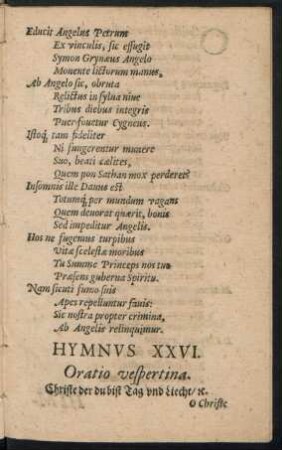 Educit Angelus Petrum
Ex vinculis, sic effugit
Symon Grynæus Angelo
Monente lictorum manus,
Ab Angelo sic, obruta
Relictus in sylua niue
Tribus diebus integris
Puer fouetur Cygneus.
Istoq́; tam fideliter
Ni fungerentur munere
Suo, beati cælites,
Quem non Sathan mox perderet?
Insomnis ille Dauus est
Totumq́; per mundum vagans
Quem deuorat quærit, bonis
Sed impeditur Angelis.
Hos ne fugemus turpibus
Vitæ scelestæ moribus
Tu Summe Princeps nos tuo
Præsens guberna Spiritu.
Nam sicuti fumo suis
Apes repelluntur fauis:
Sic nostra propter crimina,
Ab Angelis relinquimur.
HYMNVS XXVI.
Oratio vespertina.
Christe der du bist Tag vnd Liecht/ ꝛc.
O Christe